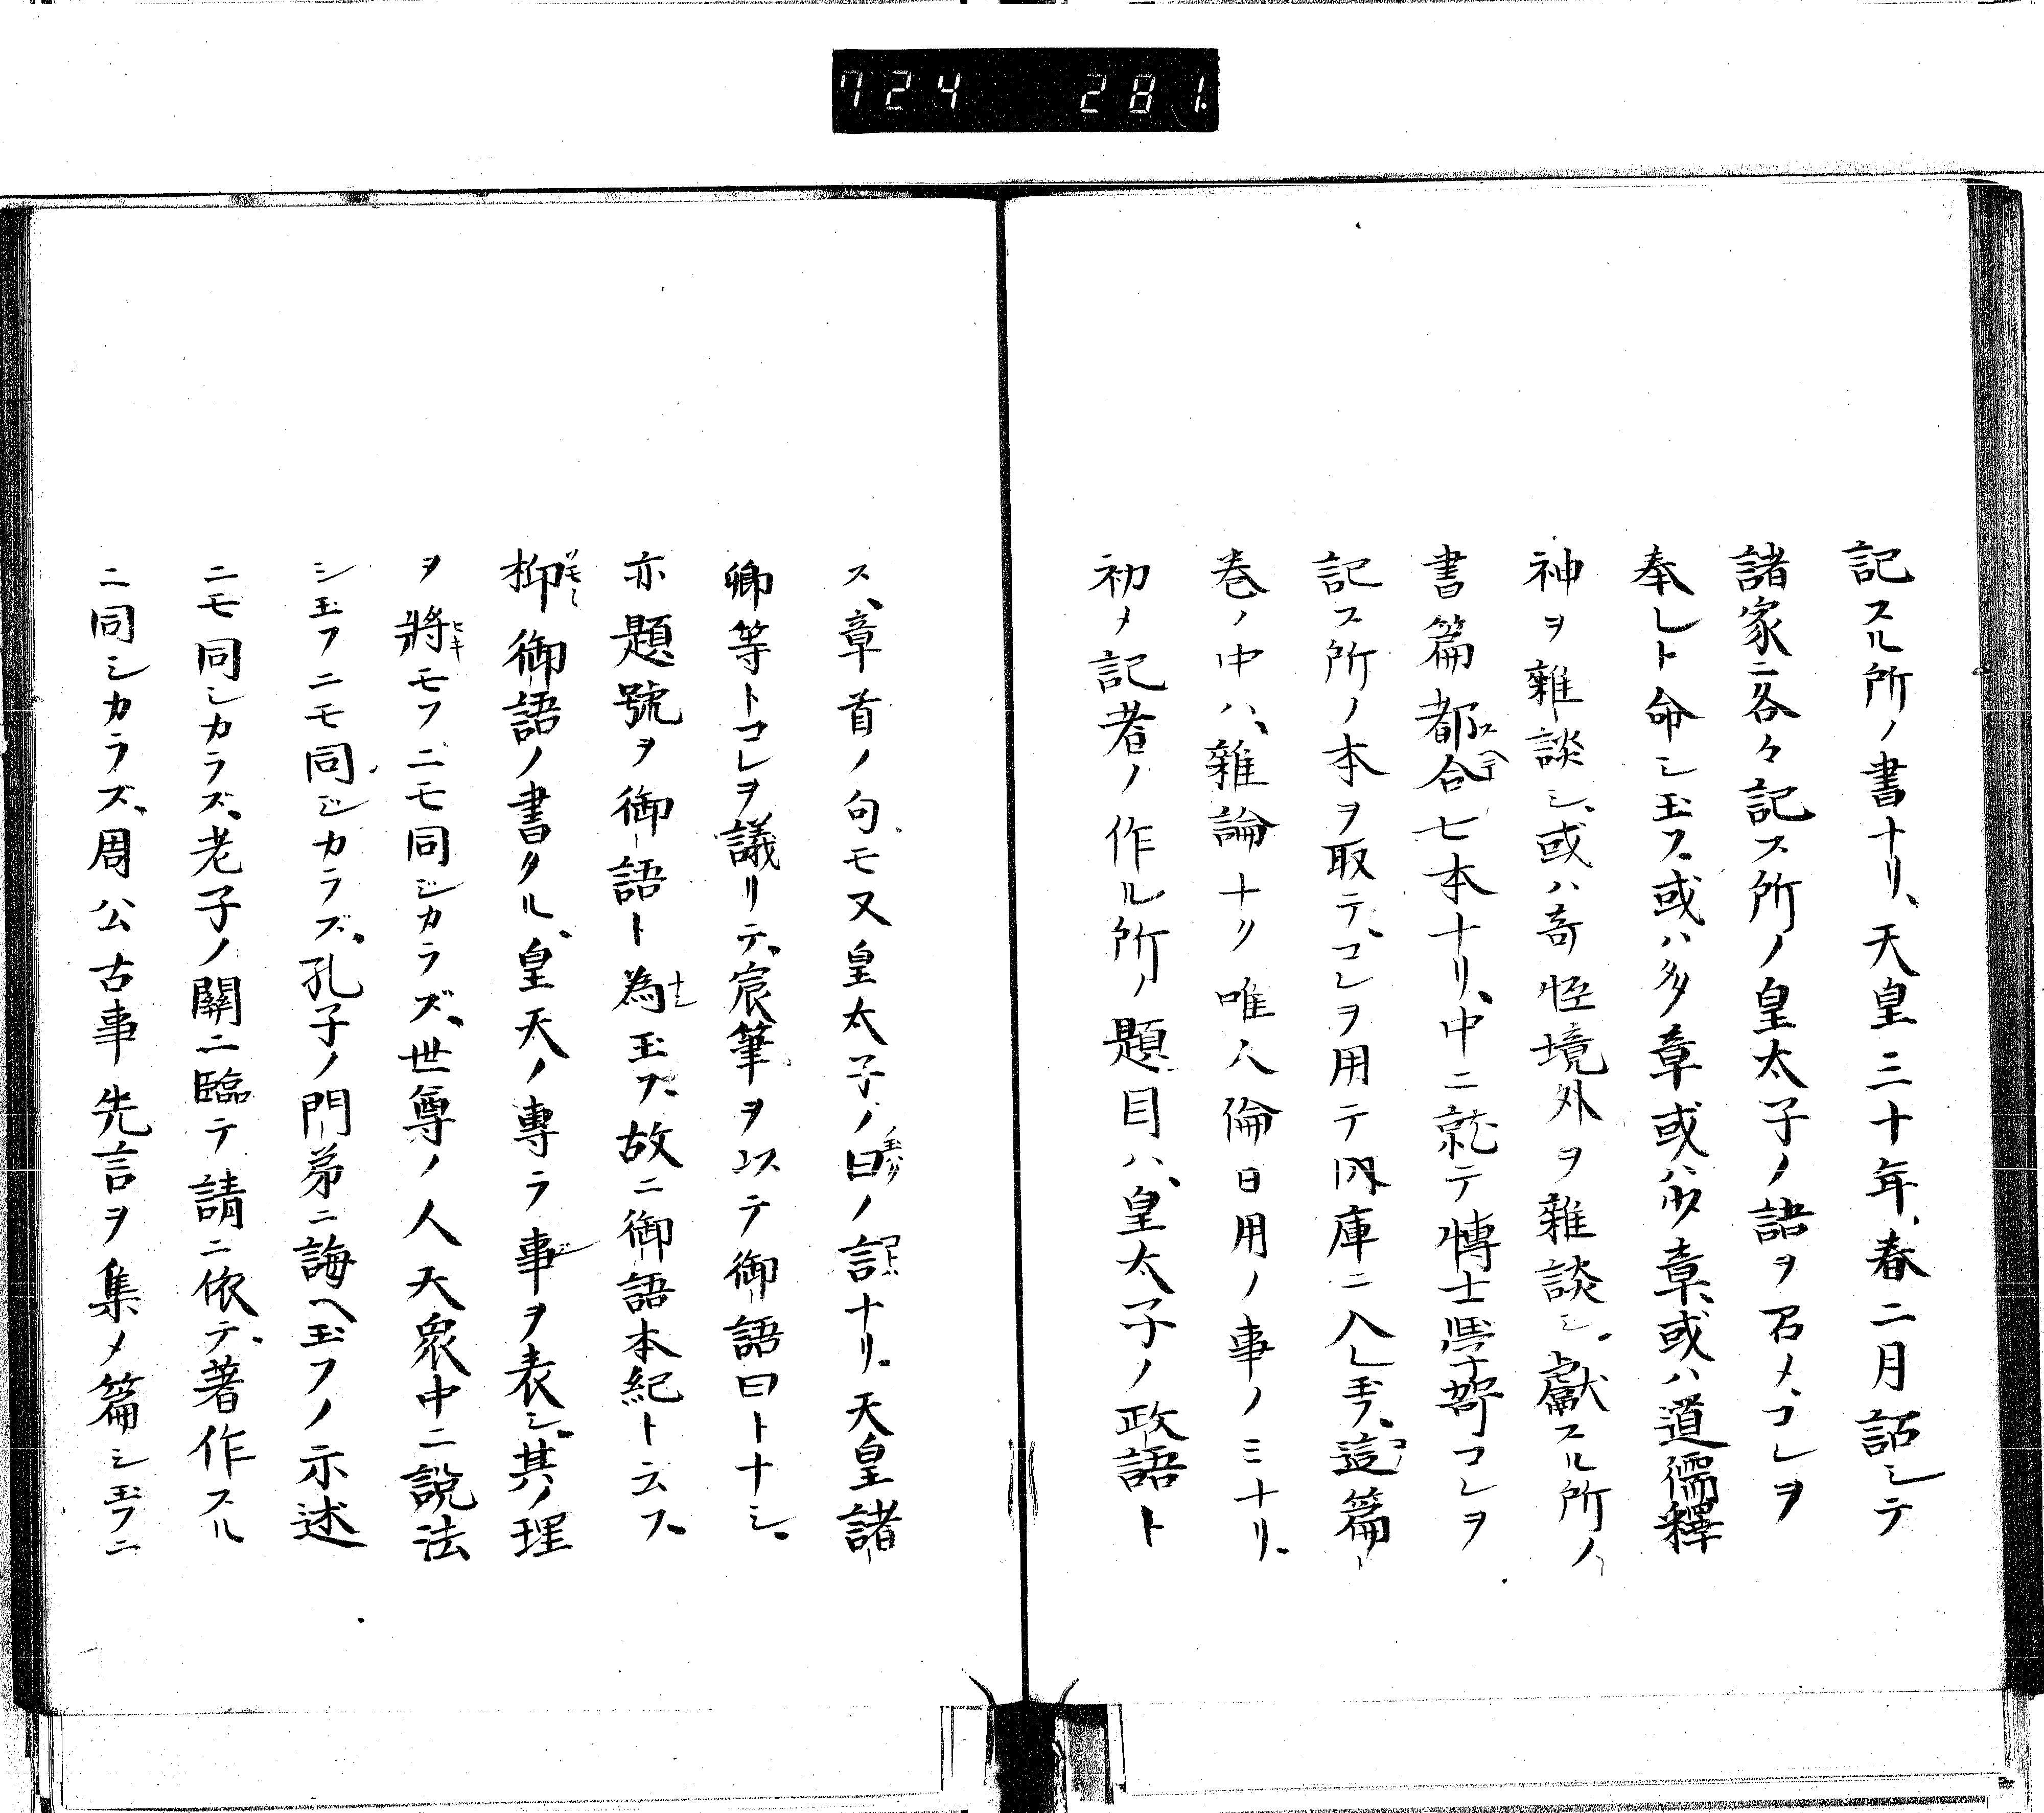 724 281.
記スル所ノ書ナリ、天皇三十年、春二月詔シテ
諸家ニ各々記ス所ノ皇太子ノ語ヲ召メ、コレヲ
奉レト命シ玉フ、或ハ多章或ハ少章、或ハ道儒釋
神ヲ雜談シ、或ハ奇怪境外ヲ雜談シ、獻スル所ノ
書篇都合七本ナリ、中ニ就テ博士學哿コレヲ
記ス所ノ本ヲ取テ、コレヲ用テ内庫ニ入レ玉フ、這篇
卷ノ中ハ、雜論ナク唯人倫日用ノ事ノミナリ。
初メ記者ノ作ル所ノ題目ハ、皇太子ノ政語ト
ス、章首ノ句モ又皇太子ノ曰ノ言ナリ。天皇諸
卿等トコレヲ議リテ、宸筆ヲ以テ御語曰トナシ。
亦題號ヲ御語ト為玉フ。故ニ御語本紀ト云フ。
抑御語ノ書タル、皇天ノ專ラ事ヲ表シ、其ノ理
ヲ將モフニモ同ジカラズ、世尊ノ人天衆中ニ說法
シ玉フニモ同ジカラズ。孔子ノ門弟ニ誨ヘ玉フノ示述
ニモ同シカラズ、老子ノ關ニ臨テ請ニ依テ、著作スル
ニ同シカラズ、周公古事先言ヲ集メ篇シ玉フニ